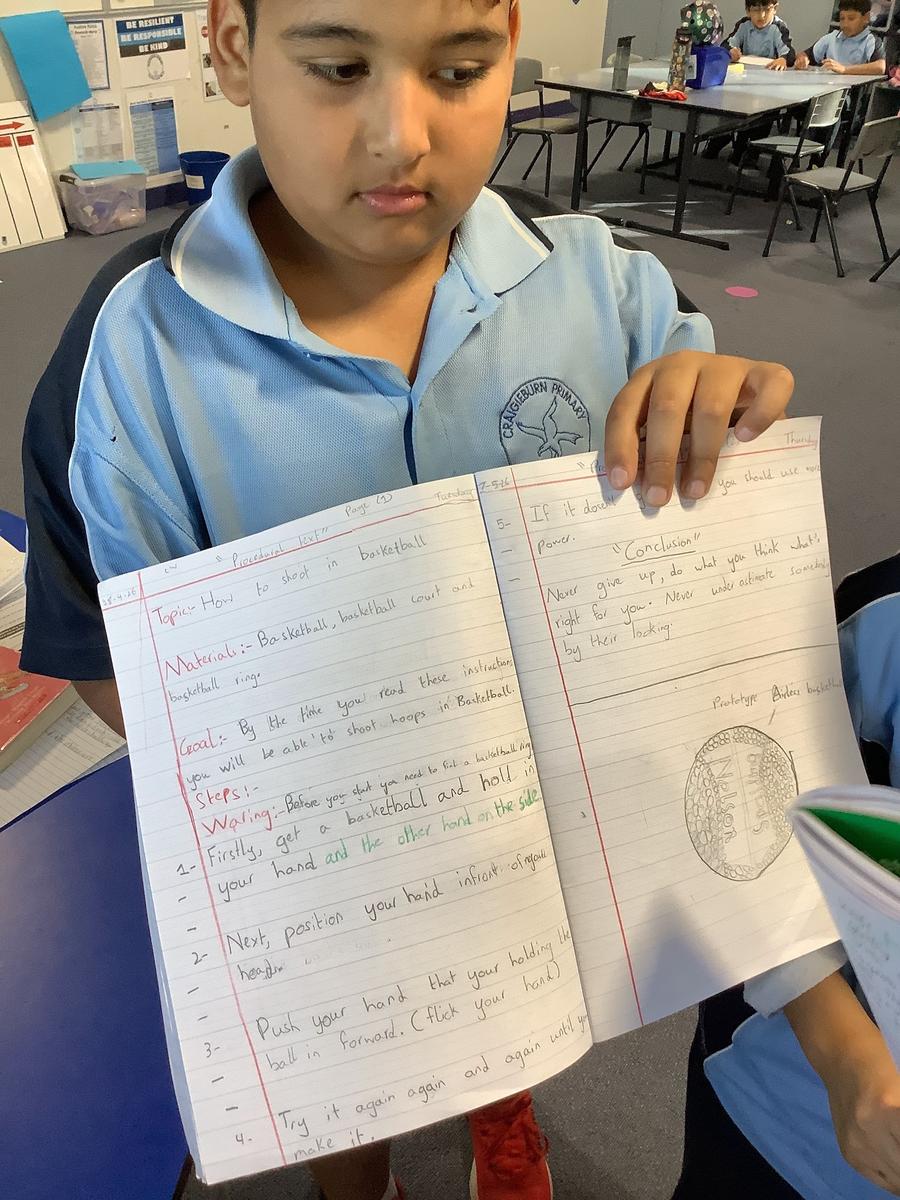 BE RESILIENT
BE RESPONSIBLE
BE KIND
CRAIGIEBURN PRIMARY
"Procedural Text" Page (1) Tuesday
28-4-26
Topic:- How to shoot in basketball
Materials:- Basketball, basketball court and
basketball ring.
Goal:- By the time you read these instructions
you will be able to shoot hoops in Basketball.
Steps:-
Waring:- Before you start you need to find a basketball ring
1- Firstly, get a basketball and hold in
your hand and the other hand on the side.
2- Next, position your hand infront of your
head.
3- Push your hand that your holding the
ball in forward. (flick your hand)
4- Try it again again and again until you
make it.
7-5-26
Thursday
5- If it doesnt you should use more
power.
"Conclusion"
Never give up, do what you think what's
right for you. Never underastimate somebody
by their looking.
Prototype Airless basketball